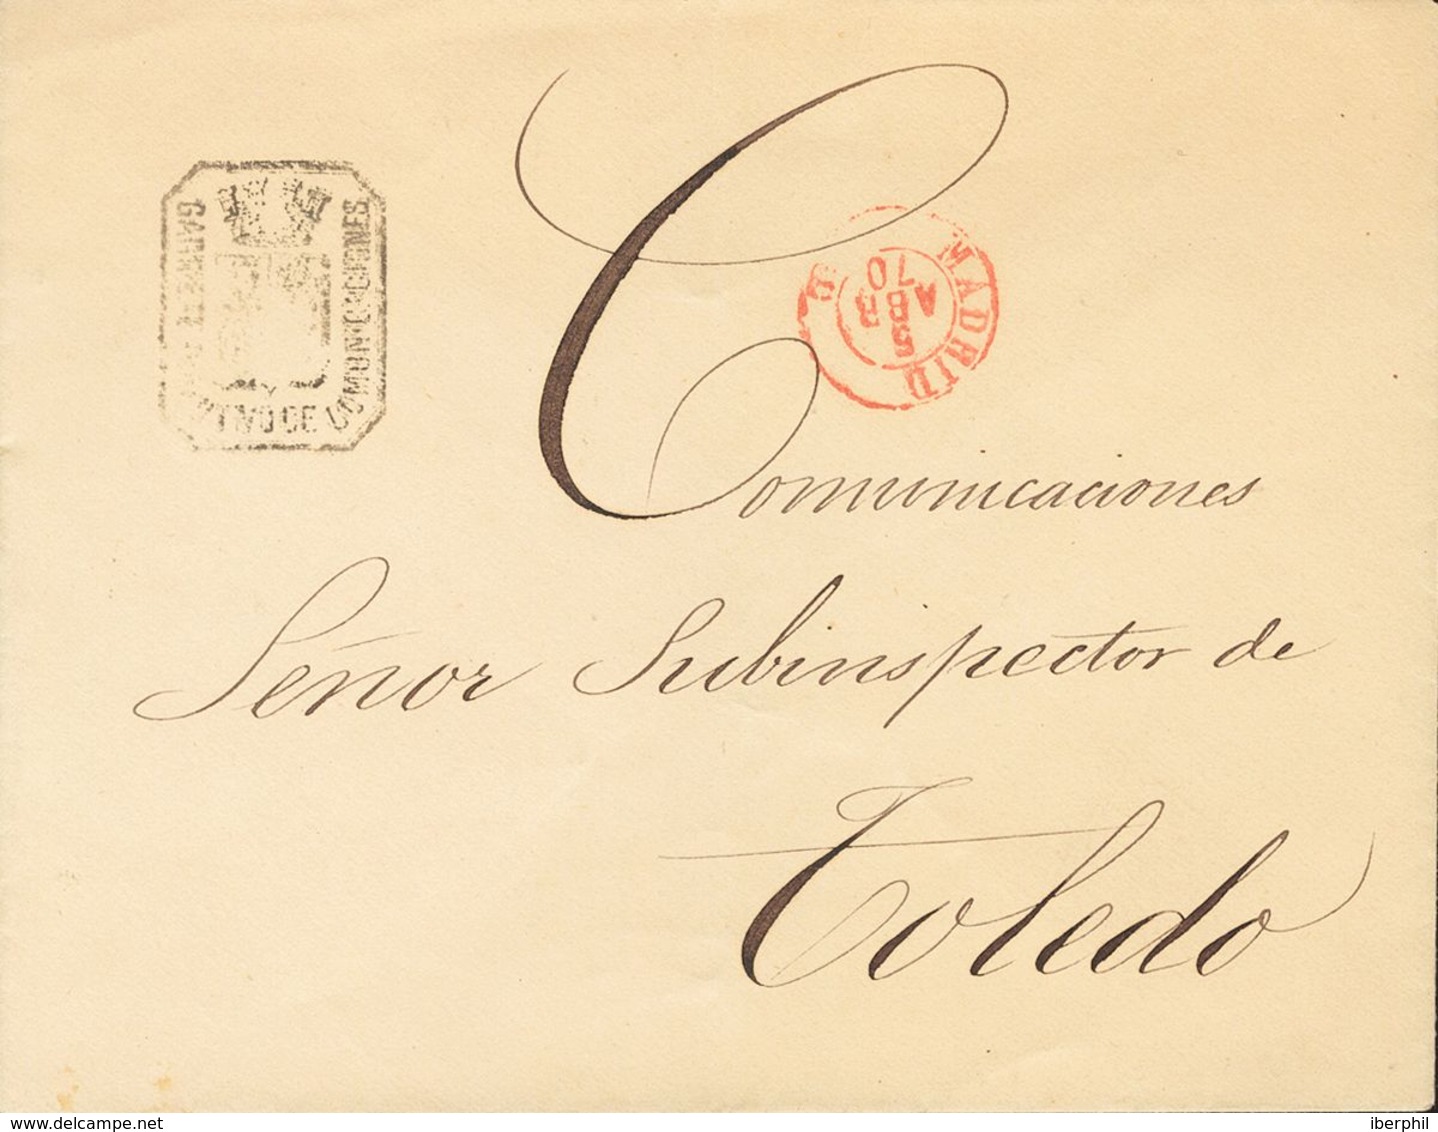 GABINETE CENTRAL NO DE COMUNICACIONES
MADRID
5
ABR
70
Comunicaciones
Señor Subinspector de
Toledo
delcampe.net
iberphil